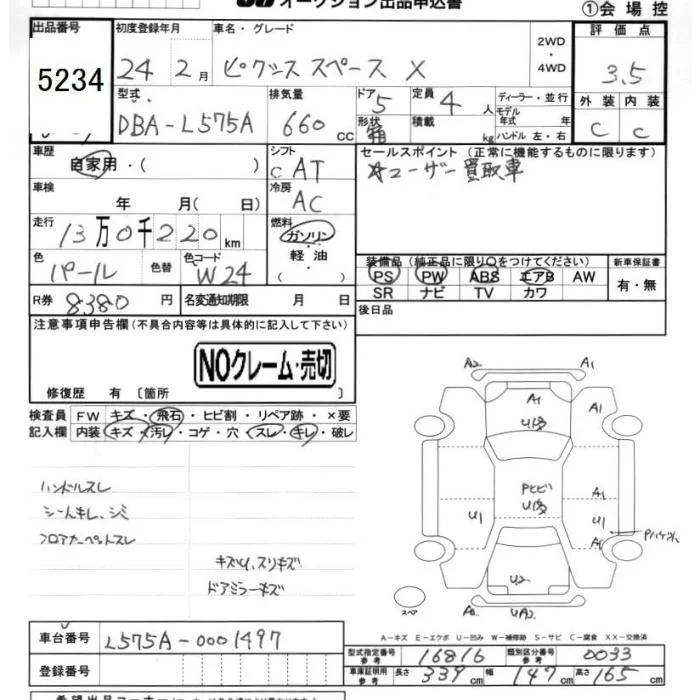 オークション出品申込書
①会場控
出品番号 5234
初度登録年月 24 2月
車名・グレード ピクシススペース X
2WD・4WD
評価点 3.5
型式 DBA-L575A
排気量 660 CC
ドア 5
定員 4人
形状 箱
積載 kg
ディーラー・並行
モデル年式 年
ハンドル 左・右
外装 C
内装 C
車歴 自家用・( )
シフト C AT
セールスポイント(正常に機能するものに限ります)
☆ユーザー買取車
車検 年 月( 日)
冷房 AC
走行 13万0千220km
燃料 ガソリン・軽油・( )
色 パール
色替
色コード W24
装備品(純正品に限り○をつけてください)
PS PW ABS エアB AW
SR ナビ TV カワ
新車保証書 有・無
R券 8380円
名変通知期限 月 日
後日品
注意事項申告欄(不具合内容等は具体的に記入して下さい)
NOクレーム・売切
修復歴 有〔箇所 〕
検査員記入欄
FW キズ・飛石・ヒビ割・リペア跡・×要
内装 キズ・汚レ・コゲ・穴・スレ・キレ・破レ
ハンドルスレ
シートキレ、シミ
フロアカーペットスレ
キズU、スリキズ
ドアミラーキズ
A2 A1
A1 A1
A1
U1 U1
A1
U2
UA2
スペア
A-キズ E-エクボ U-凹み W-補修跡 S-サビ C-腐食 XX-交換済
車台番号 L575A-0001497
登録番号
型式指定番号 参考 16816
類別区分番号 参考 0033
車庫証明用 参考 長さ 339cm 幅 147cm 高さ 165cm
希望出品コーナー